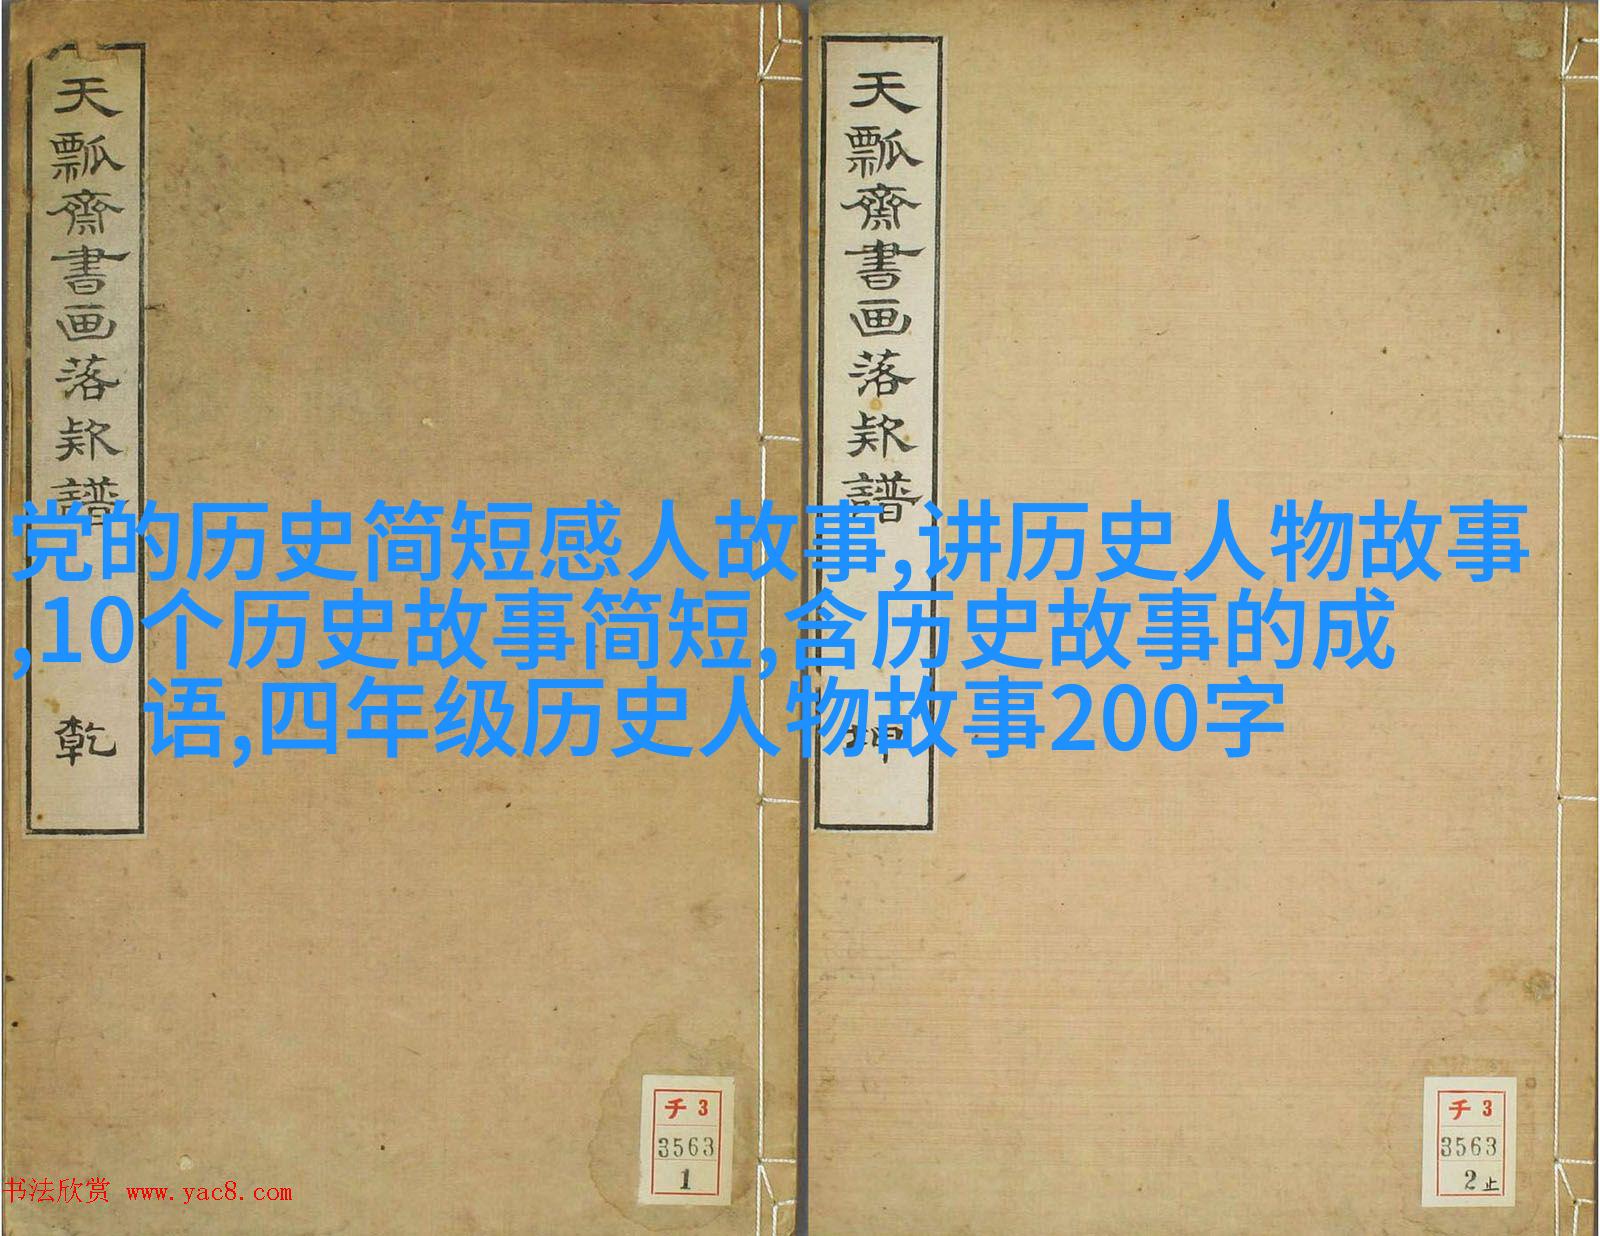 天瓢齋書画落款譜
乾
天瓢齋書画落款譜
坤
党的历史简短感人故事,讲历史人物故事
,10个历史故事简短,含历史故事的成
语,四年级历史人物故事200字
チ3
3563
1
チ3
3563
2止
书法欣赏 www.yac8.com